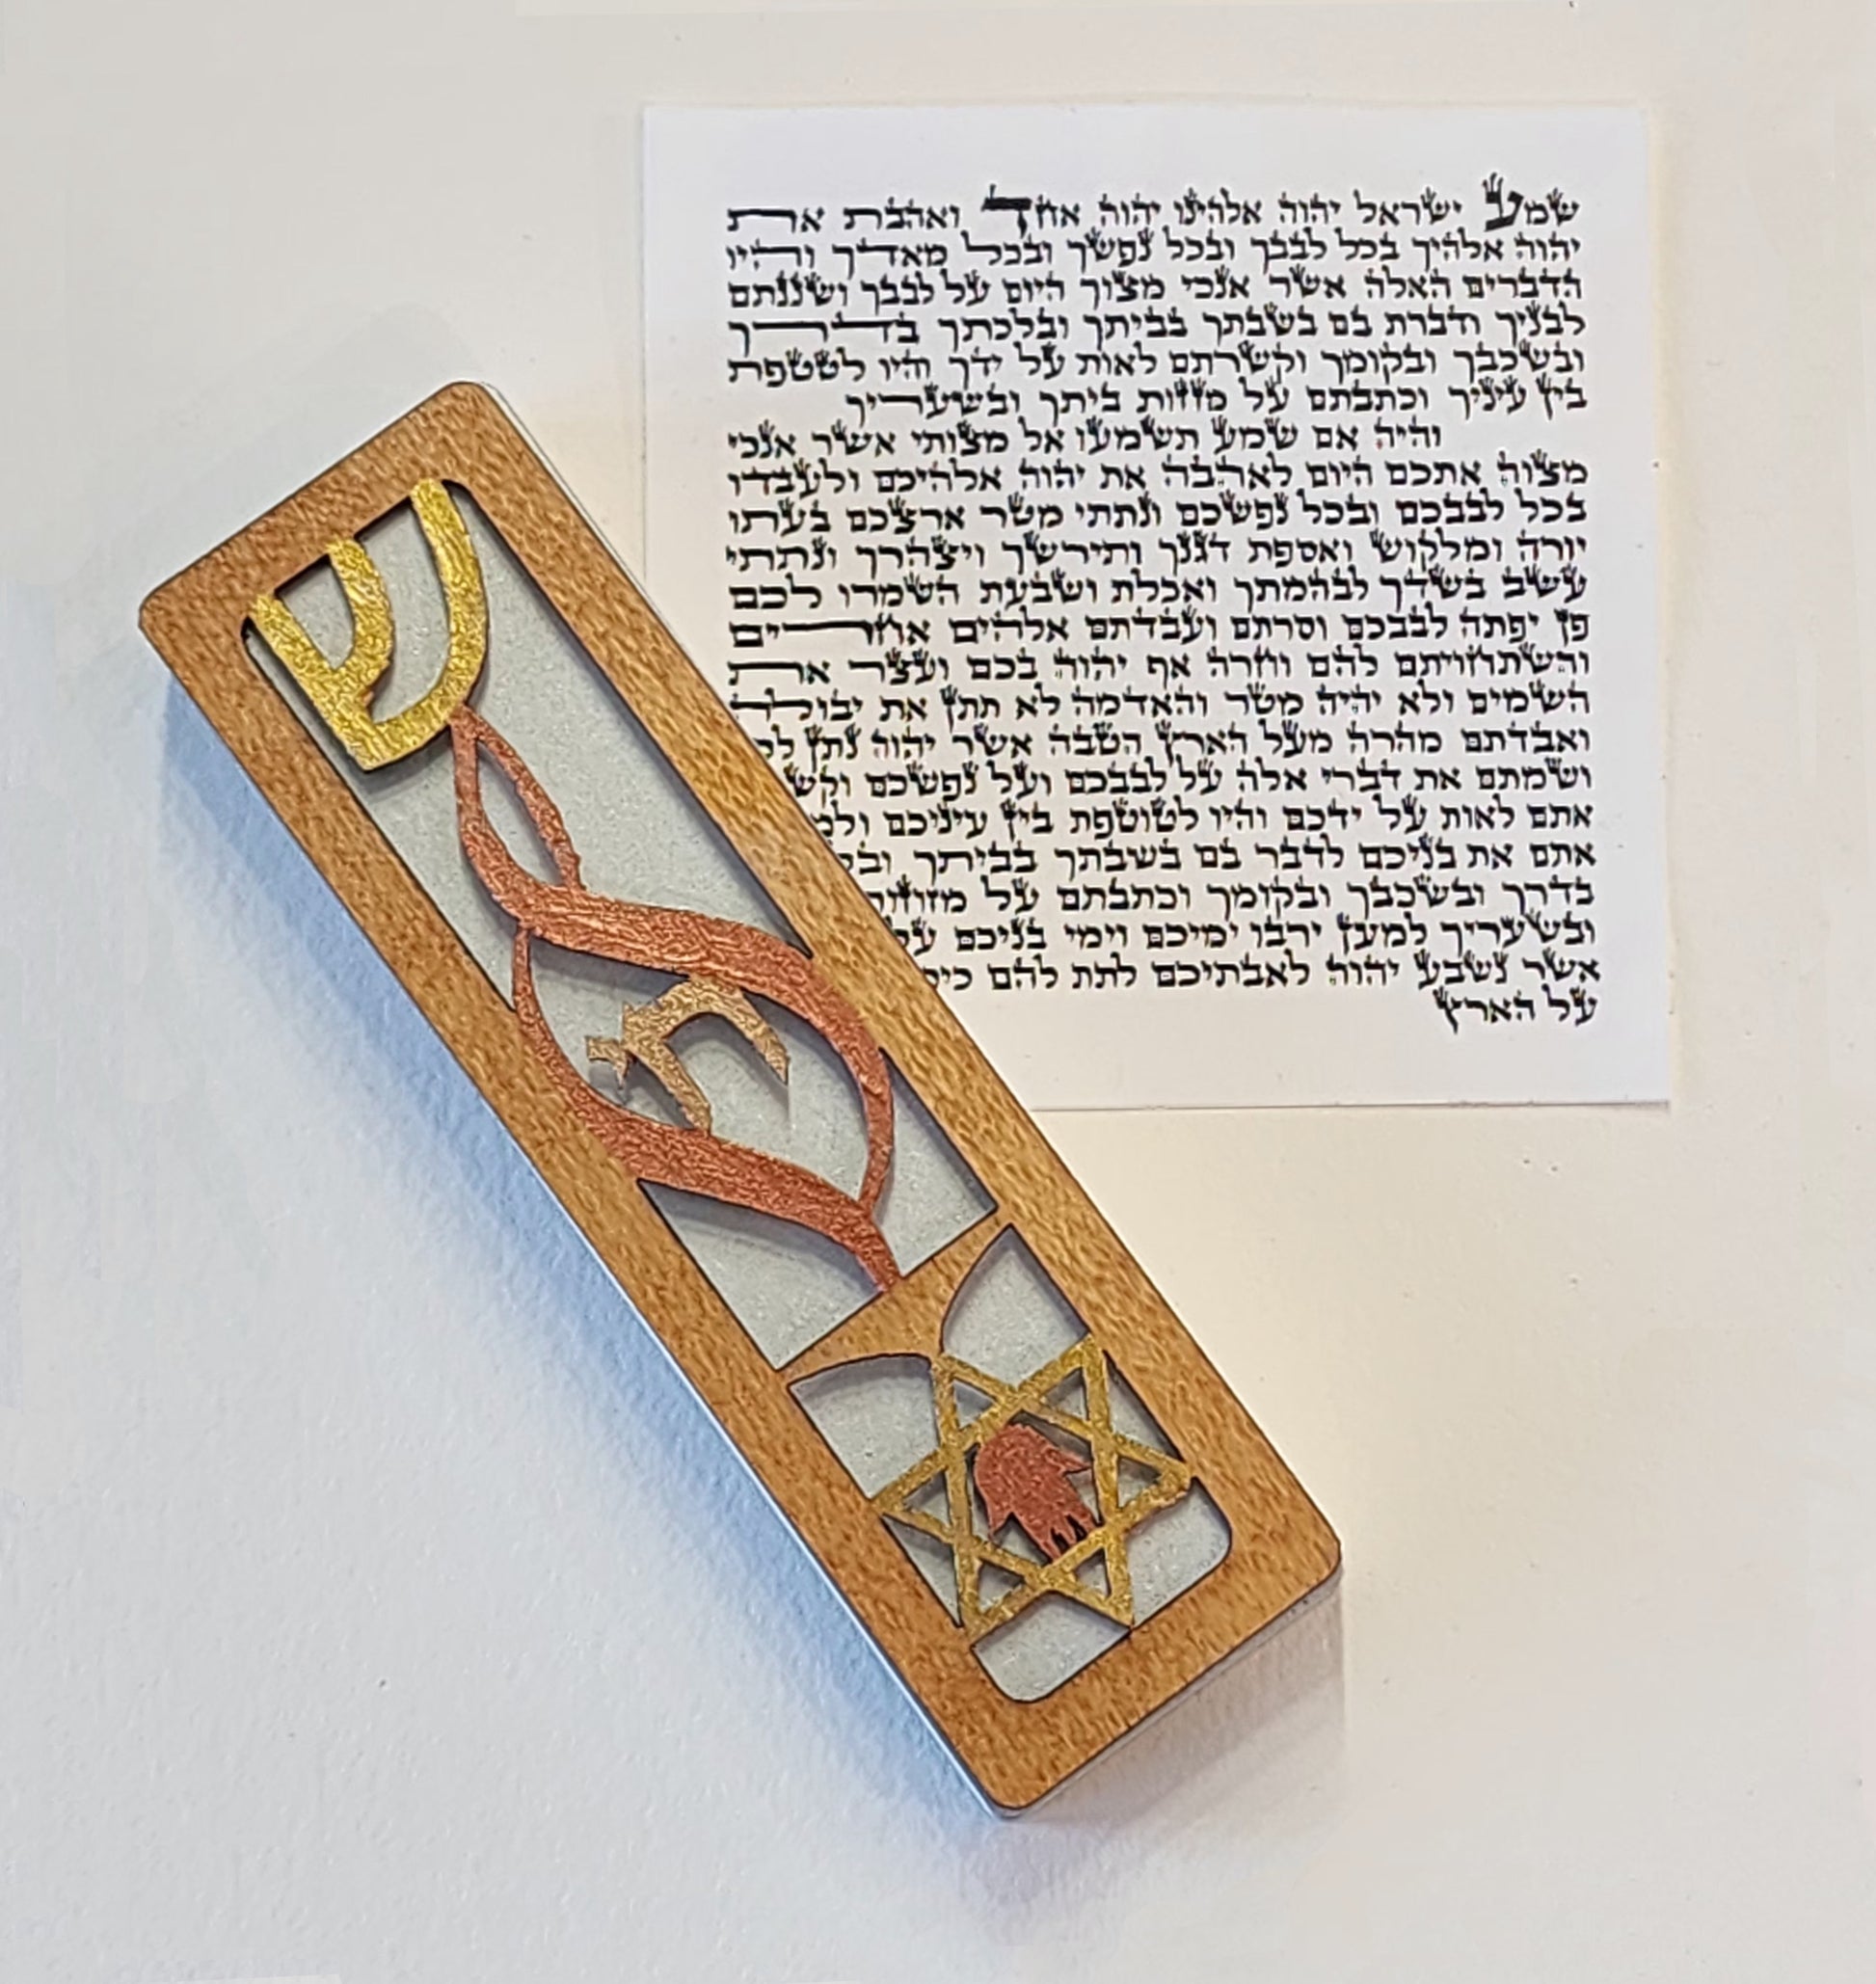 שמע ישראל יהוה אלהינו יהוה אחד ואהבת את
יהוה אלהיך בכל לבבך ובכל נפשך ובכל מאדך והיו
הדברים האלה אשר אנכי מצוך היום על לבבך ושננתם
לבניך ודברת בם בשבתך בביתך ובלכתך בדרך
ובשכבך ובקומך וקשרתם לאות על ידך והיו לטטפת
בין עיניך וכתבתם על מזזות ביתך ובשעריך
והיה אם שמע תשמעו אל מצותי אשר אנכי
מצוה אתכם היום לאהבה את יהוה אלהיכם ולעבדו
בכל לבבכם ובכל נפשכם ונתתי מטר ארצכם בעתו
יורה ומלקוש ואספת דגנך ותירשך ויצהרך ונתתי
עשב בשדך לבהמתך ואכלת ושבעת השמרו לכם
פן יפתה לבבכם וסרתם ועבדתם אלהים אחרים
והשתחויתם להם וחרה אף יהוה בכם ועצר את
השמים ולא יהיה מטר והאדמה לא תתן את יבולה
ואבדתם מהרה מעל הארץ הטבה אשר יהוה נתן לכ
ושמתם את דברי אלה על לבבכם ועל נפשכם וקש
אתם לאות על ידכם והיו לטוטפת בין עיניכם ולמ
אתם את בניכם לדבר בם בשבתך בביתך ובל
בדרך ובשכבך ובקומך וכתבתם על מזוזות
ובשעריך למען ירבו ימיכם וימי בניכם על
אשר נשבע יהוה לאבתיכם לתת להם כימ
על הארץ
ש
חי